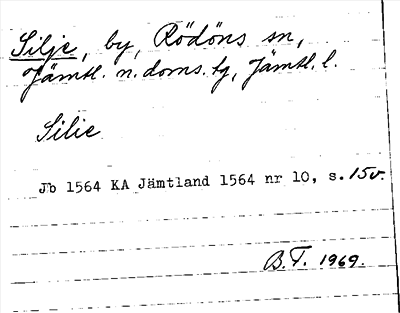 Silje, by, Rödöns sn,
Jämtl. n. doms. tg, Jämtl. l.
Silie
Jb 1564 KA Jämtland 1564 nr 10, s. 15v.
B.T. 1969.